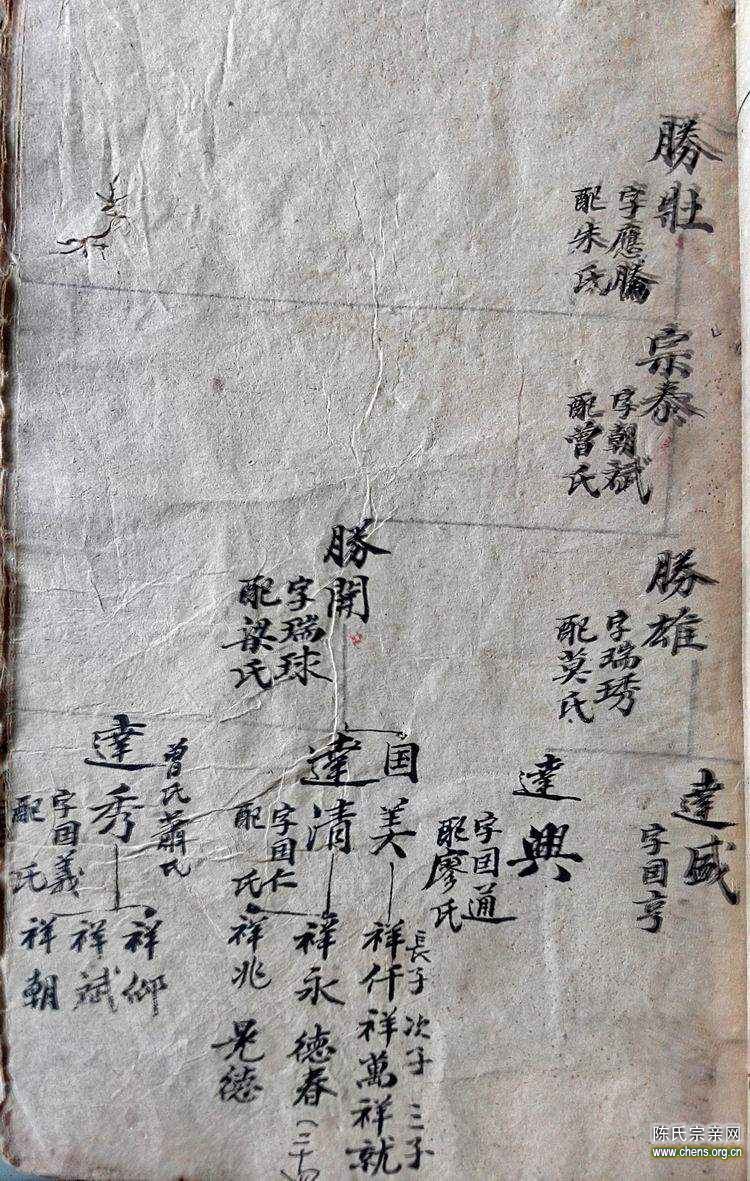 勝壯
字應騰
配朱氏
宗泰
字朝斌
配曾氏
勝雄
字瑞琇
配莫氏
勝開
字瑞球
配梁氏
達盛
字国亨
達興
字国通
配廖氏
国美
達清
字国仁
配 氏
達秀
曾氏蕭氏
字国義
配 氏
長子 次子 三子
祥仟祥萬祥就
祥永 德春
祥兆 晃德
祥仰
祥斌
祥朝
陈氏宗亲网
www.chens.org.cn